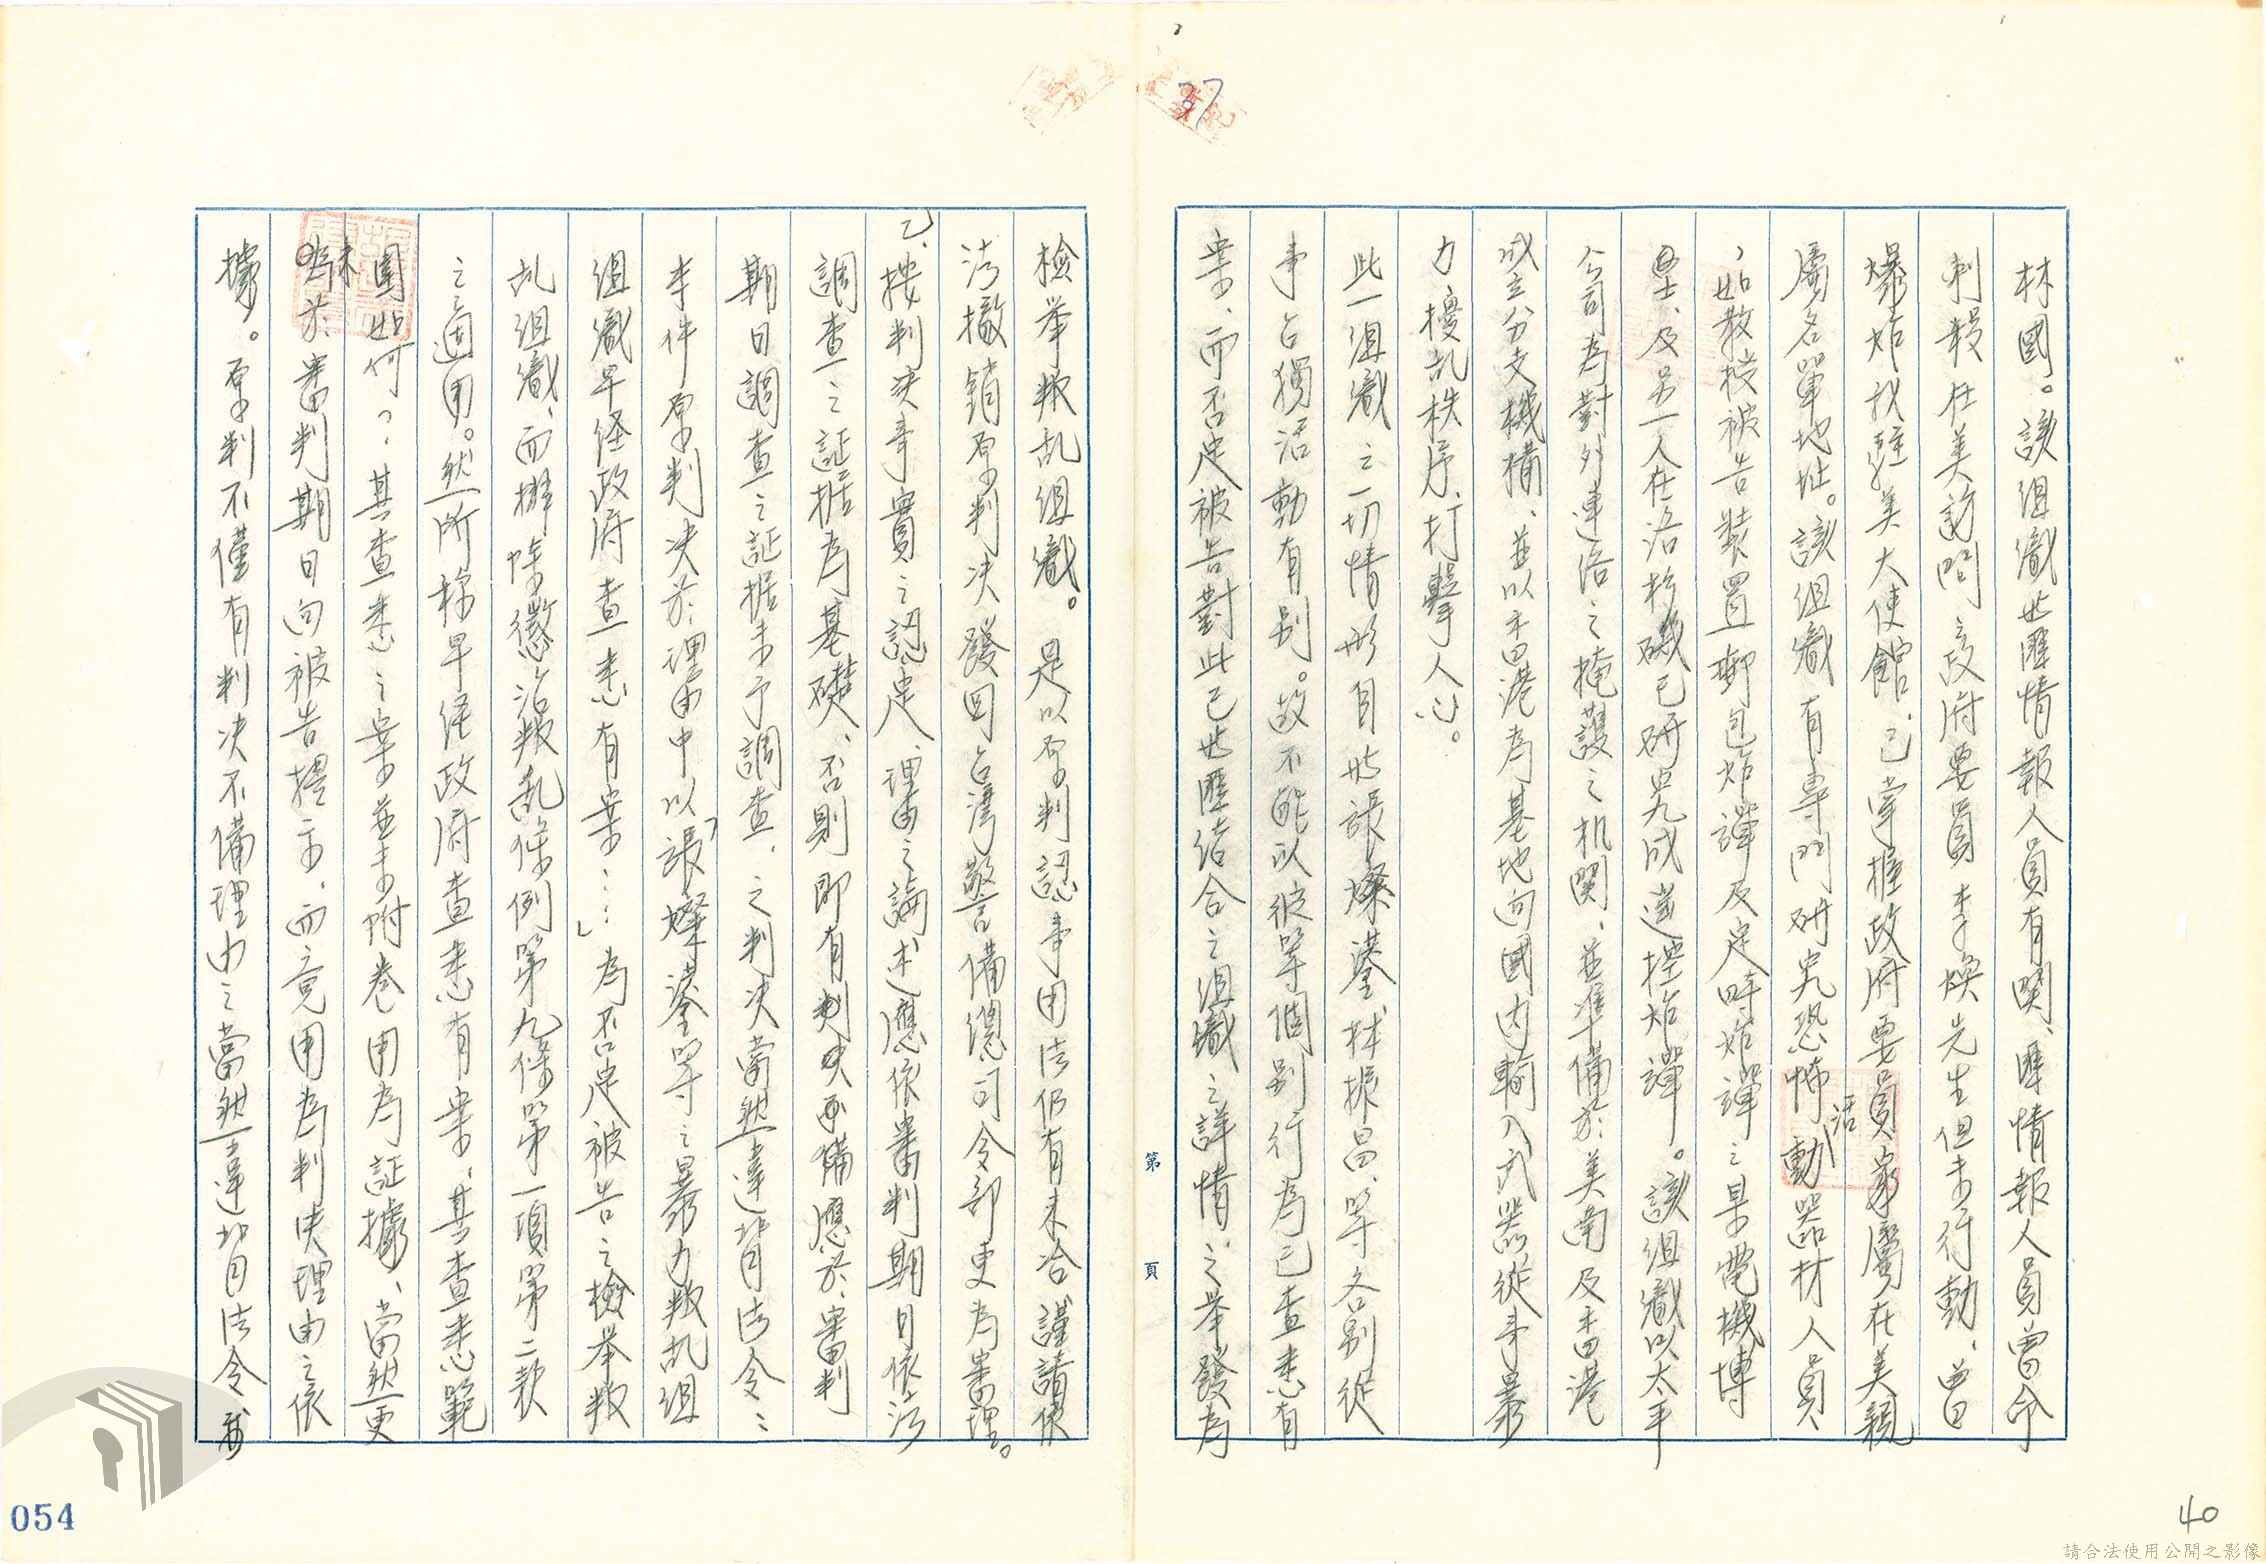 37
林國。該組織与匪情報人員有関、匪情報人員曾命
刺殺在美訪問之政府要員李煥先生但未行動、曾
爆炸我駐美大使館、已掌握政府要員家屬在美親
屬名單地址。該組織有專門研究恐怖活動器材人員、
、如教授被告裝置郵包炸彈及定時炸彈之某電機博
士、及另一人在洛杉磯已研究成遙控炸彈。該組織以太平
公司為對外連洛之掩護之机関、並準備於美南及香港
成立分支機構、並以香港為基地向國内輸入武器從事暴
力擾乱秩序、打擊人心。
此一組織之一切情形自与張燦鍙、林振昌、等各别從
事台獨活動有别。故不能以彼等個别行為已查悉有
案、而否定被告對此已与匪结合之组織之詳情、之举發為
檢举叛乱组織。是以原判認事用法仍有未洽、謹請依
法撤銷原判决發回台湾警備總司令部更為審理。
乙、按判决事實之認定、理由之論述應依審判期日依法
調查之証据為基礎、否則即有判决不備應於審判
期日調查之証据未予調查、之判决當然違背法令：
本件原判决於理由中以「張燦鍙等之暴力叛乱组
组織早经政府查悉有案…」為不否定被告之檢举叛
乱组織、而排除懲治叛乱條例第九條第一項第二款
之適用。然所稱早经政府查悉有案、其查悉範
圍如何？、其查悉之案並未附卷用為証據、當然更
未於審判期日向被告提示、而竟用為判决理由之依
據。原判不僅有判决不備理由之當然違背法令
第 頁
054
40
請合法使用公開之影像